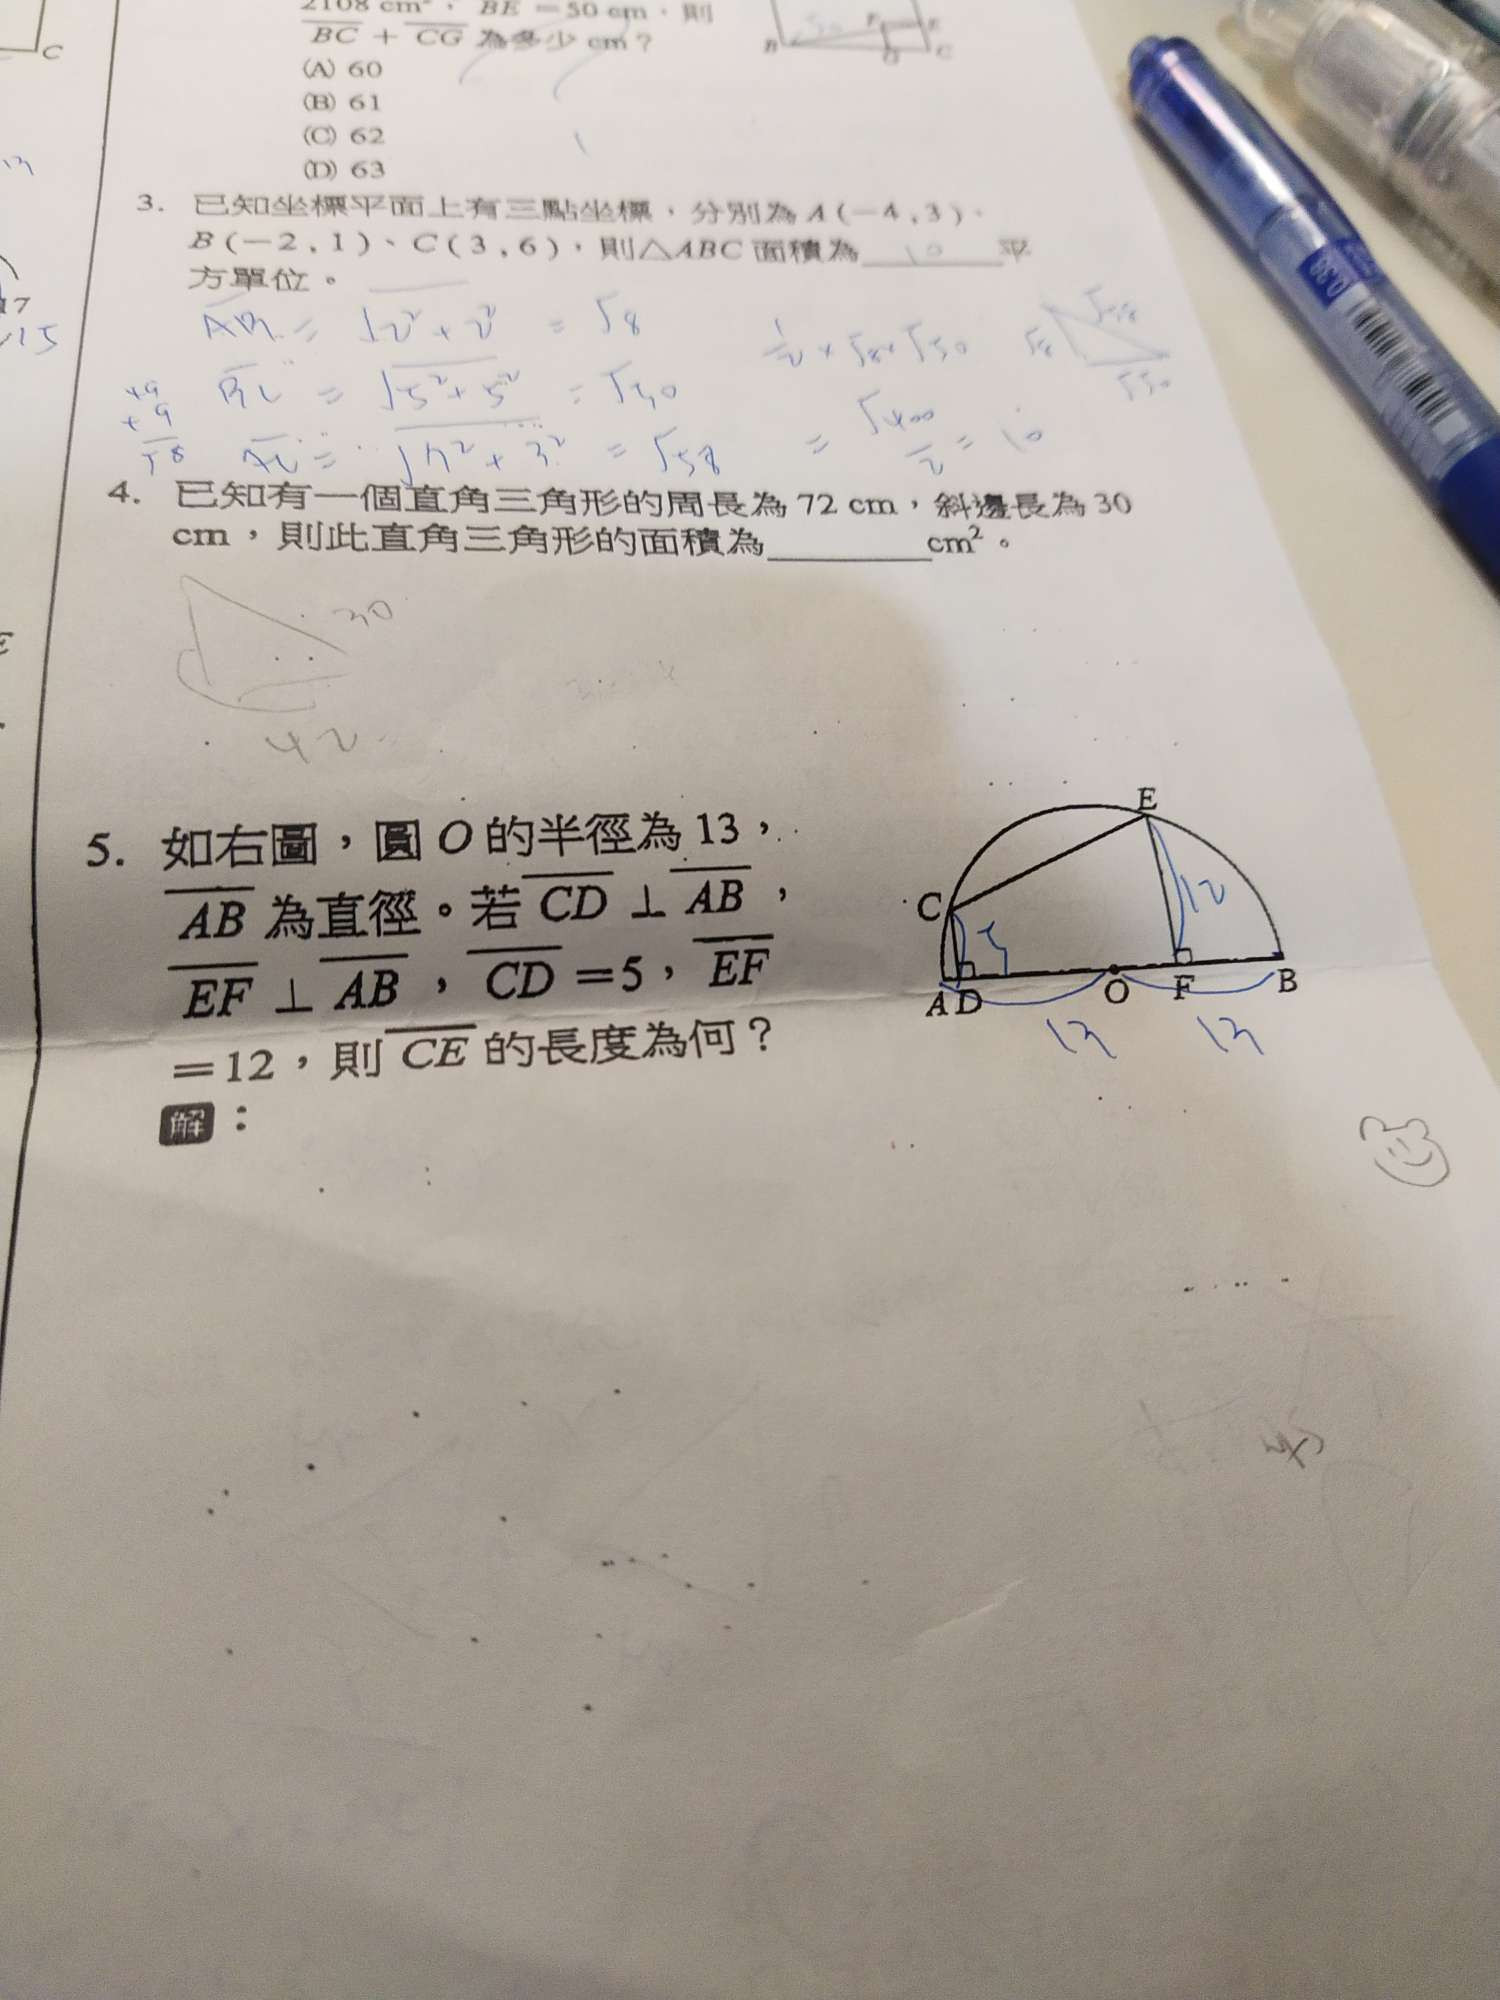 C
2108 cm²， BE ＝50 cm，則
BC ＋ CG 為多少 cm？
(A) 60
(B) 61
(C) 62
(D) 63
B
C
3. 已知坐標平面上有三點坐標，分別為 A(－4,3)、
B(－2,1)、C(3,6)，則△ABC 面積為 10 平
方單位。
17
AB = √2²+2² = √8
BC = √5²+5² = √50
AC = √7²+3² = √58
49
+ 9
58
1/2 × √8 × √50
= √400/2 = 10
√8
√58
√50
4. 已知有一個直角三角形的周長為 72 cm，斜邊長為 30
cm，則此直角三角形的面積為 cm²。
30
42
5. 如右圖，圓 O 的半徑為 13，
AB 為直徑。若 CD ⊥ AB，
EF ⊥ AB，CD ＝5，EF
＝12，則 CE 的長度為何？
解：
E
C
5
12
A D O F B
13 13
0.38